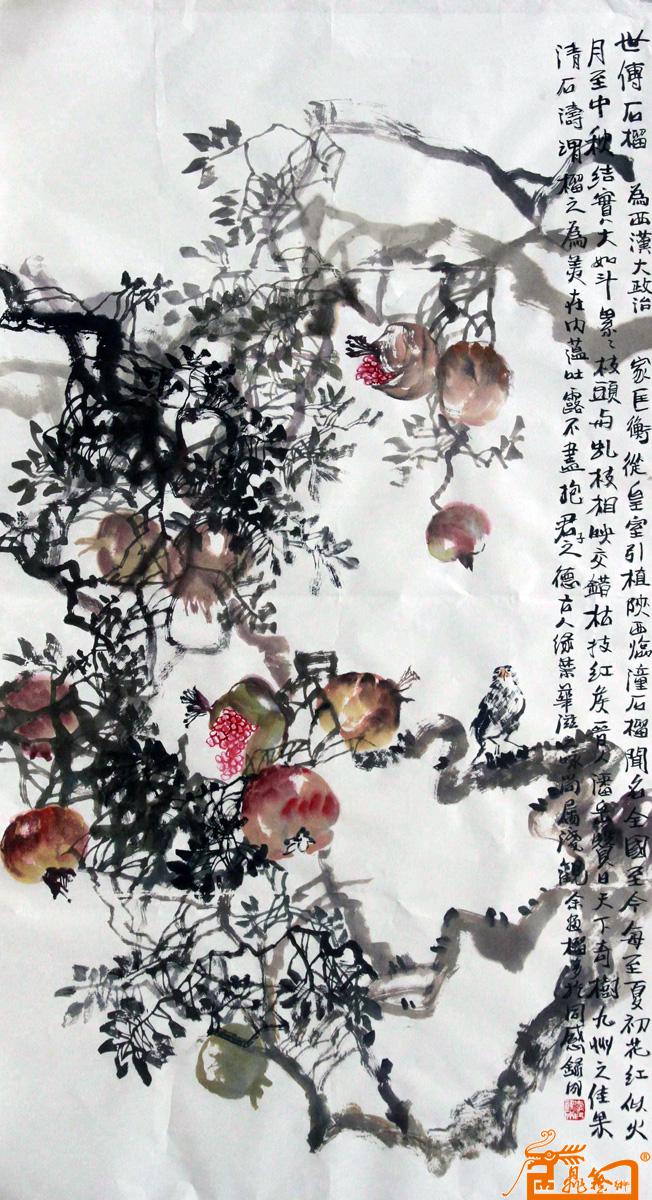 世傳石榴為西漢大政治家匡衡從皇室引植陝西臨潼石榴聞名全國至今每至夏初花紅似火
月至中秋結實大如斗累々枝頭與虬枝相映交錯枯技紅炙晉人潘岳賛曰天下奇樹九州之佳果
清石濤謂榴之為美在内蘊吐露不盡抱君子之德古人綠葉華滋之咏尚屬淺觀余復榴多於同感錄